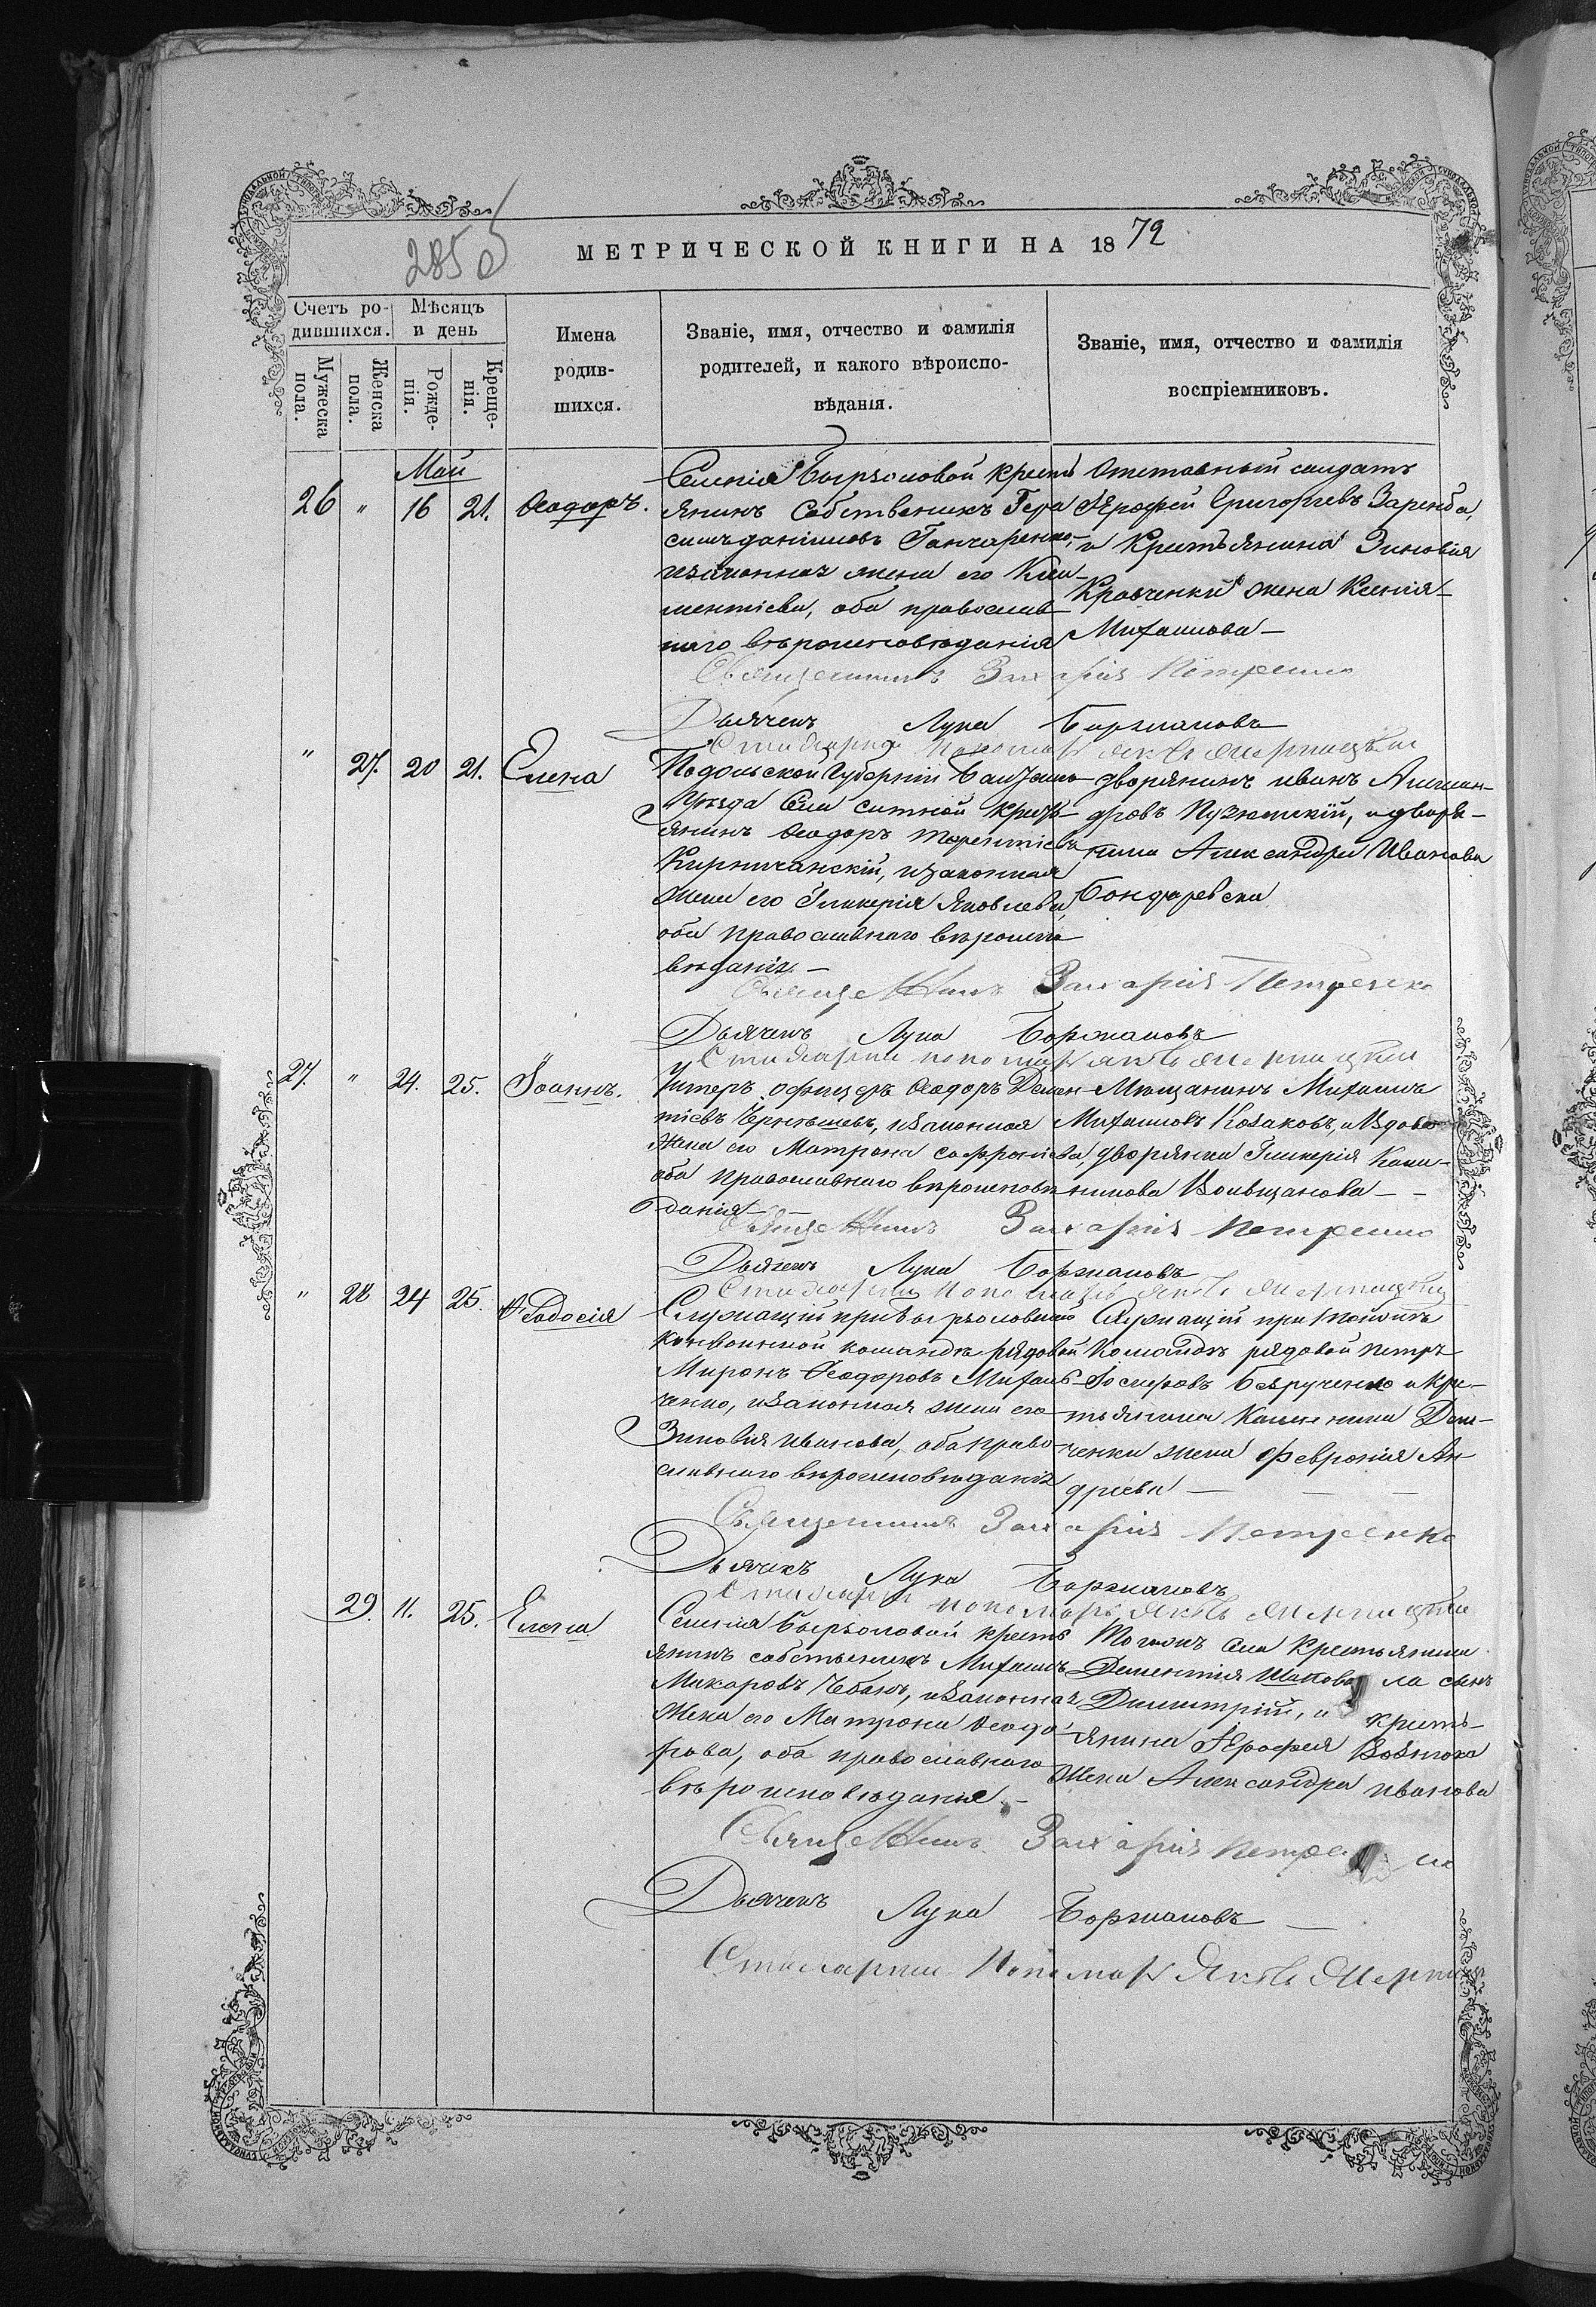 285
МЕТРИЧЕСКОЙ КНИГИ НА 1872
Счетъ ро-
дившихся.
Мужеска
пола.
Женска
пола.
Мѣсяцъ
и день
Рожде-
нія.
Креще-
нія.
Имена
родив-
шихся.
Званіе, имя, отчество и фамилія
родителей, и какого вѣроиспо-
вѣданія.
Званіе, имя, отчество и фамилія
воспріемниковъ.
Май
26 " 16 21. Ѳеодоръ.
Селенія Бырзоловой кресть
янинъ Собственикъ Гера
Гончаренко,
изаконная жена его Кли-
ментіева, оба православ
наго вѣроисповѣданія
Отставный солдатъ
Ярофей Григорьевъ Заремба,
и Крестьянина Зиновія
Кравченка жена Ксенія
Михаилова
Священникъ Захарія Петренко
Дьячекъ Лука Боржаковъ
" 27. 20 21. Елена
Подольской Губерніи
Уѣзда Села Ситной кресть-
янинъ Ѳеодоръ Терентіевъ
Кирничанскій, изаконная
жена его Гликерія Яковлева,
оба православнаго вѣроиспо
вѣданія.
дворянинъ иванъ Алексан-
дровъ и дворя-
нина Александра Иванова
Бондаревска
Священникъ Захарія Петренко
Дьячекъ Лука Боржаковъ
27. " 24. 25. Іоаннъ.
Унтеръ офицеръ Ѳеодоръ Демен-
тіевъ Чернышевъ, изаконная
жена его Матрона Софроніева,
оба православнаго вѣроисповѣ
данія
Мѣщанинъ Михаилъ
Михаиловъ Козаковъ, и вдова
дворянка Гликерія
Священникъ Захарія Петренко
Дьячекъ Лука Боржаковъ
" 28 24 25. Ѳеодосія
Служащій при Бырзоловской
конвойной командѣ рядовой
Миронъ Ѳеодоровъ Михаль-
ченко, изаконная жена его
Зиновія иванова, оба право
славнаго вѣроисповѣданія
Служащій при тойжъ
Командѣ рядовой петръ
Іосифовъ Безрученко и кре-
стьянина Калиника Дем-
ченки жена Февронія Ан
дреева
Священникъ Захарія Петренко
Дьячекъ Лука Боржаковъ
29. 11. 25. Елена
Селенія Бырзоловой кресть
янинъ собственикъ Михаилъ
Макаровъ Чебанъ, изаконная
жена его Матрона Ѳеодо
рова, оба православнаго
вѣроисповѣданія
Тогожъ села крестьянина
Дементія Шаповала сынъ
Димитрій, и кресть-
янина Ярофея Вознюка
жена Александра иванова
Священникъ Захарія Петренко
Дьячекъ Лука Боржаковъ